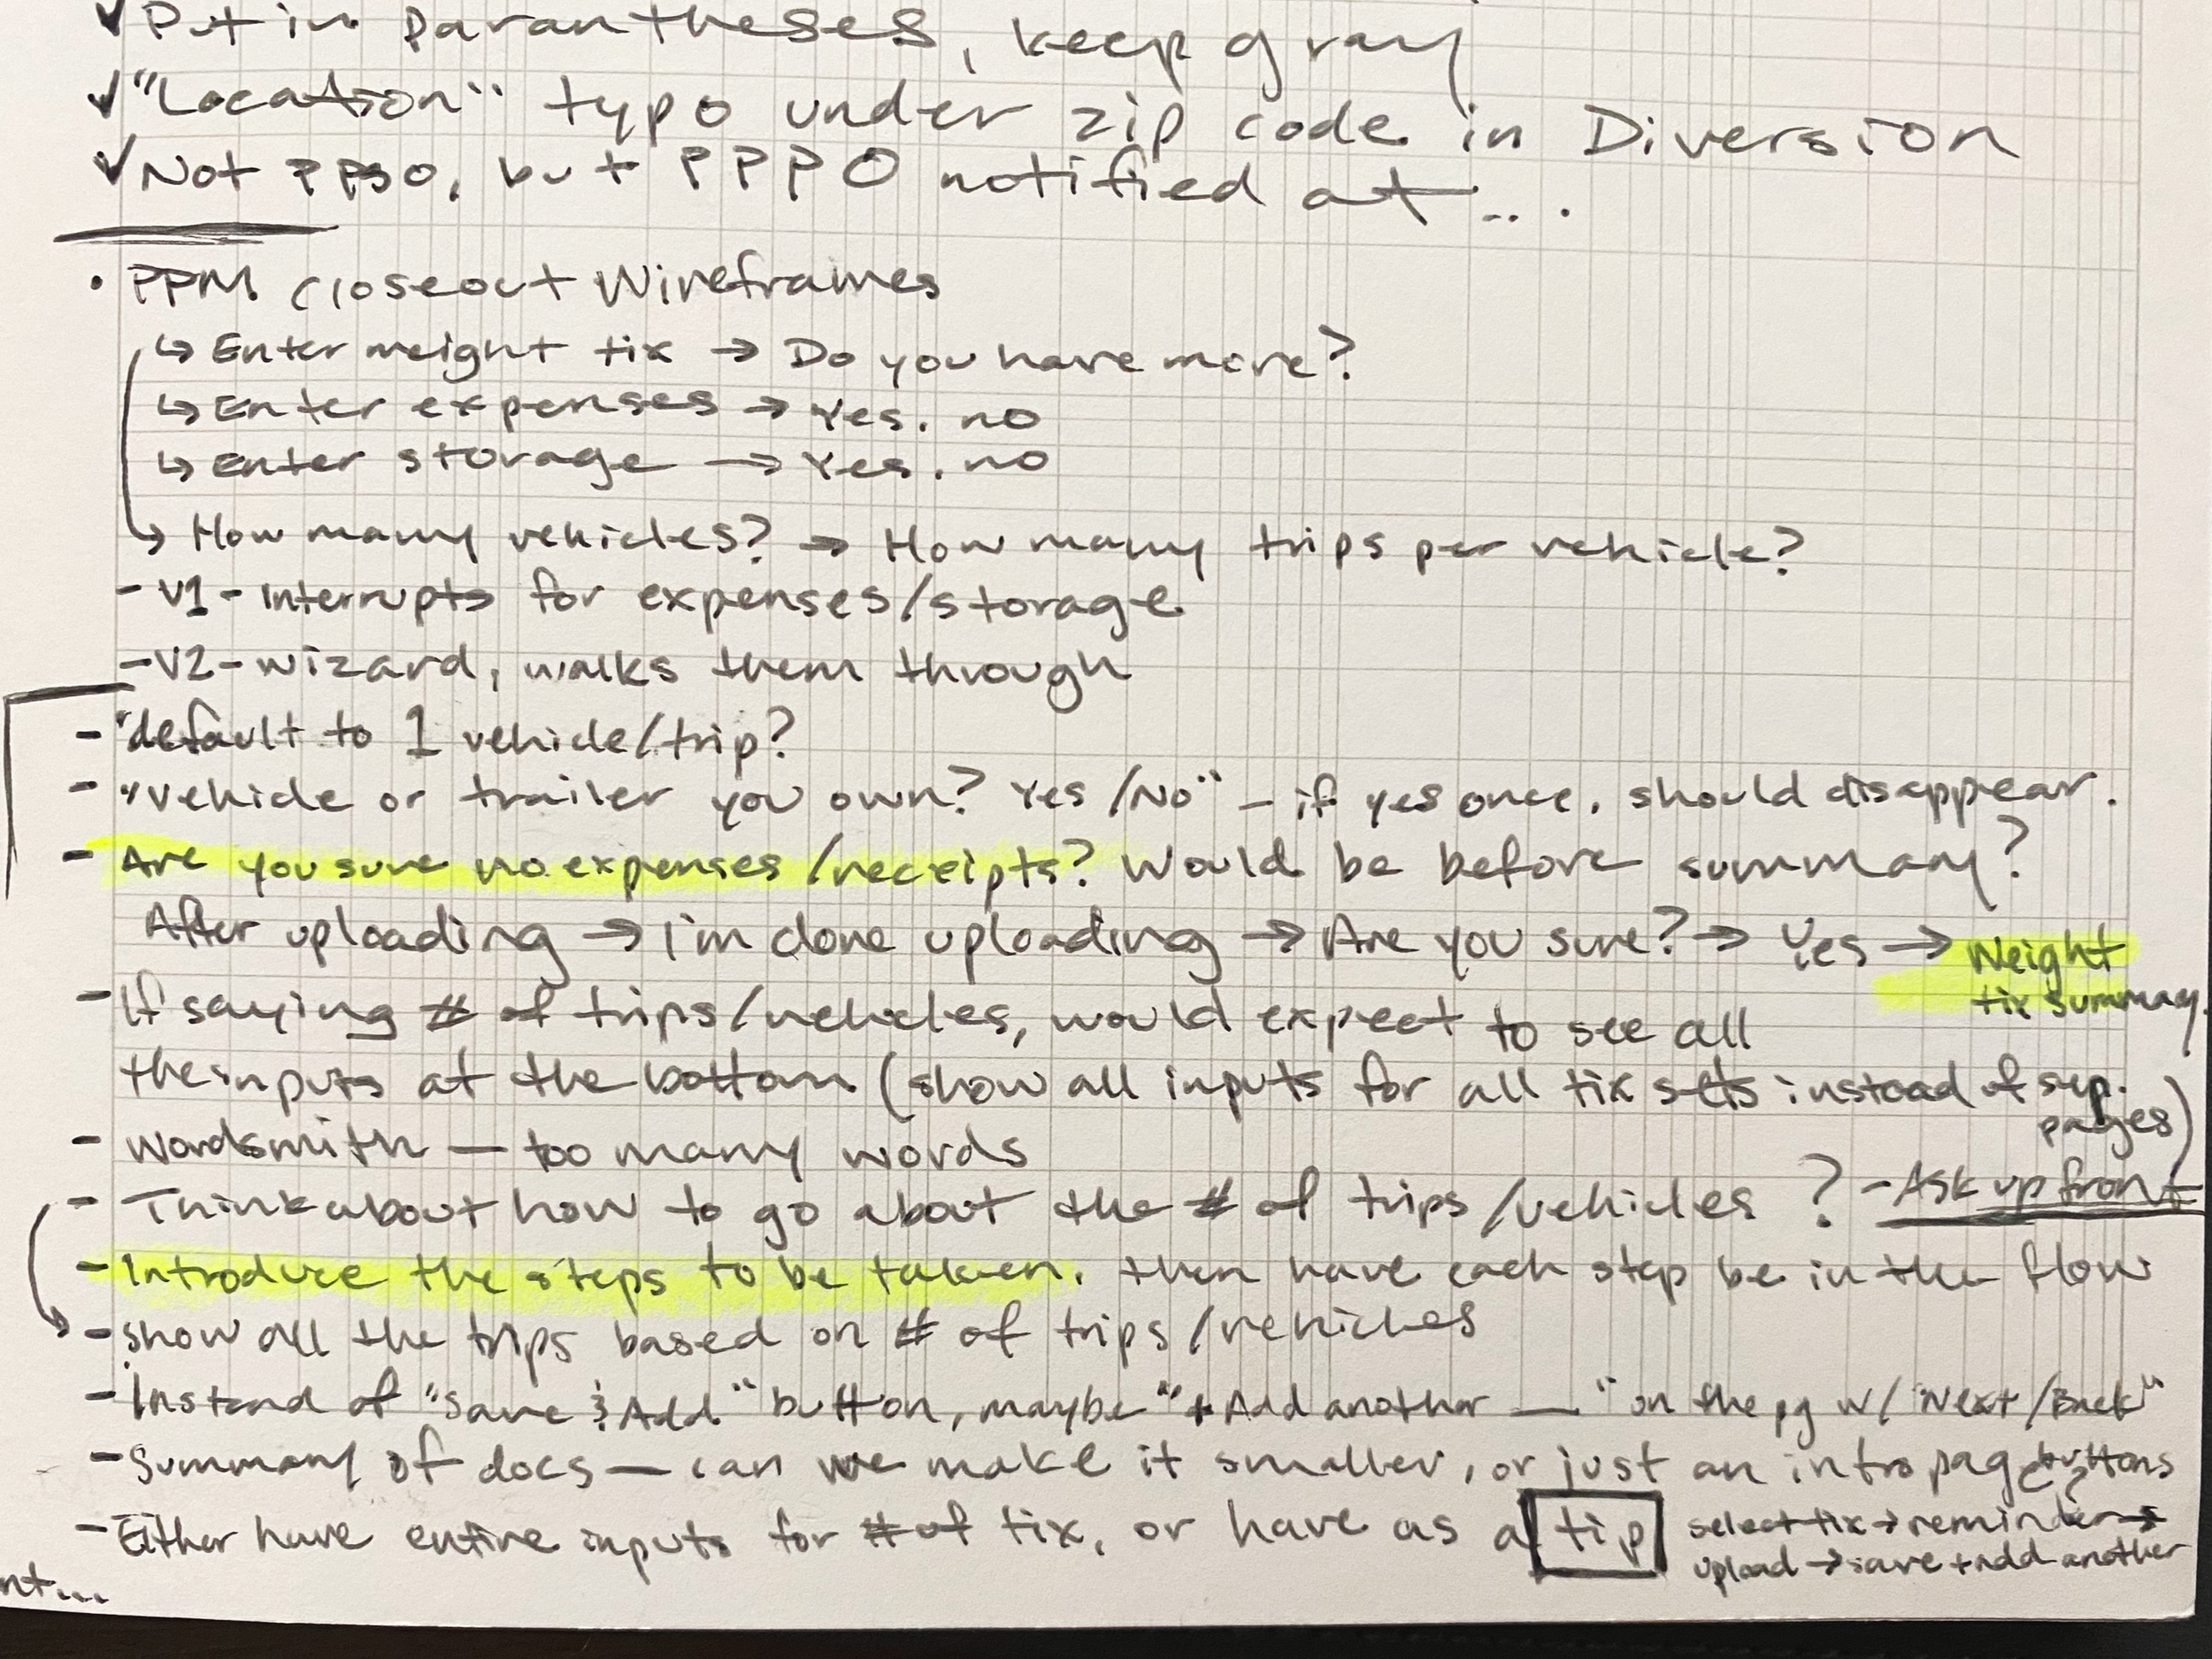 ✓ Put in parantheses, keep gray
✓ "Location" typo under zip code in Diversion
✓ Not PPSO, but PPPO notified at...
• PPM closeout Wireframes
↳ Enter weight tix → Do you have more?
↳ Enter expenses → Yes. no
↳ Enter storage → Yes. no
↳ How many vehicles? → How many trips per vehicle?
- V1 - Interrupts for expenses/storage
- V2 - wizard, walks them through
- default to 1 vehicle/trip?
- "vehicle or trailer you own? Yes/No" - if yes once, should disappear.
- Are you sure no expenses/receipts? Would be before summary?
After uploading → I'm done uploading → Are you sure? → Yes → Weight
tix summary.
- If saying # of trips/vehicles, would expect to see all
the inputs at the bottom (show all inputs for all tix sets instead of sep.
pages)
- wordsmith — too many words
- Think about how to go about the # of trips/vehicles? - Ask up front
- Introduce the steps to be taken, then have each step be in the flow
- show all the trips based on # of trips/vehicles
- Instead of "Save & Add" button, maybe "+ Add another —" on the pg w/ "Next/Back"
buttons
- Summary of docs — can we make it smaller, or just an intro page?
- Either have entire inputs for # of tix, or have as a tip
select tix → reminder →
upload → save + add another
nt...